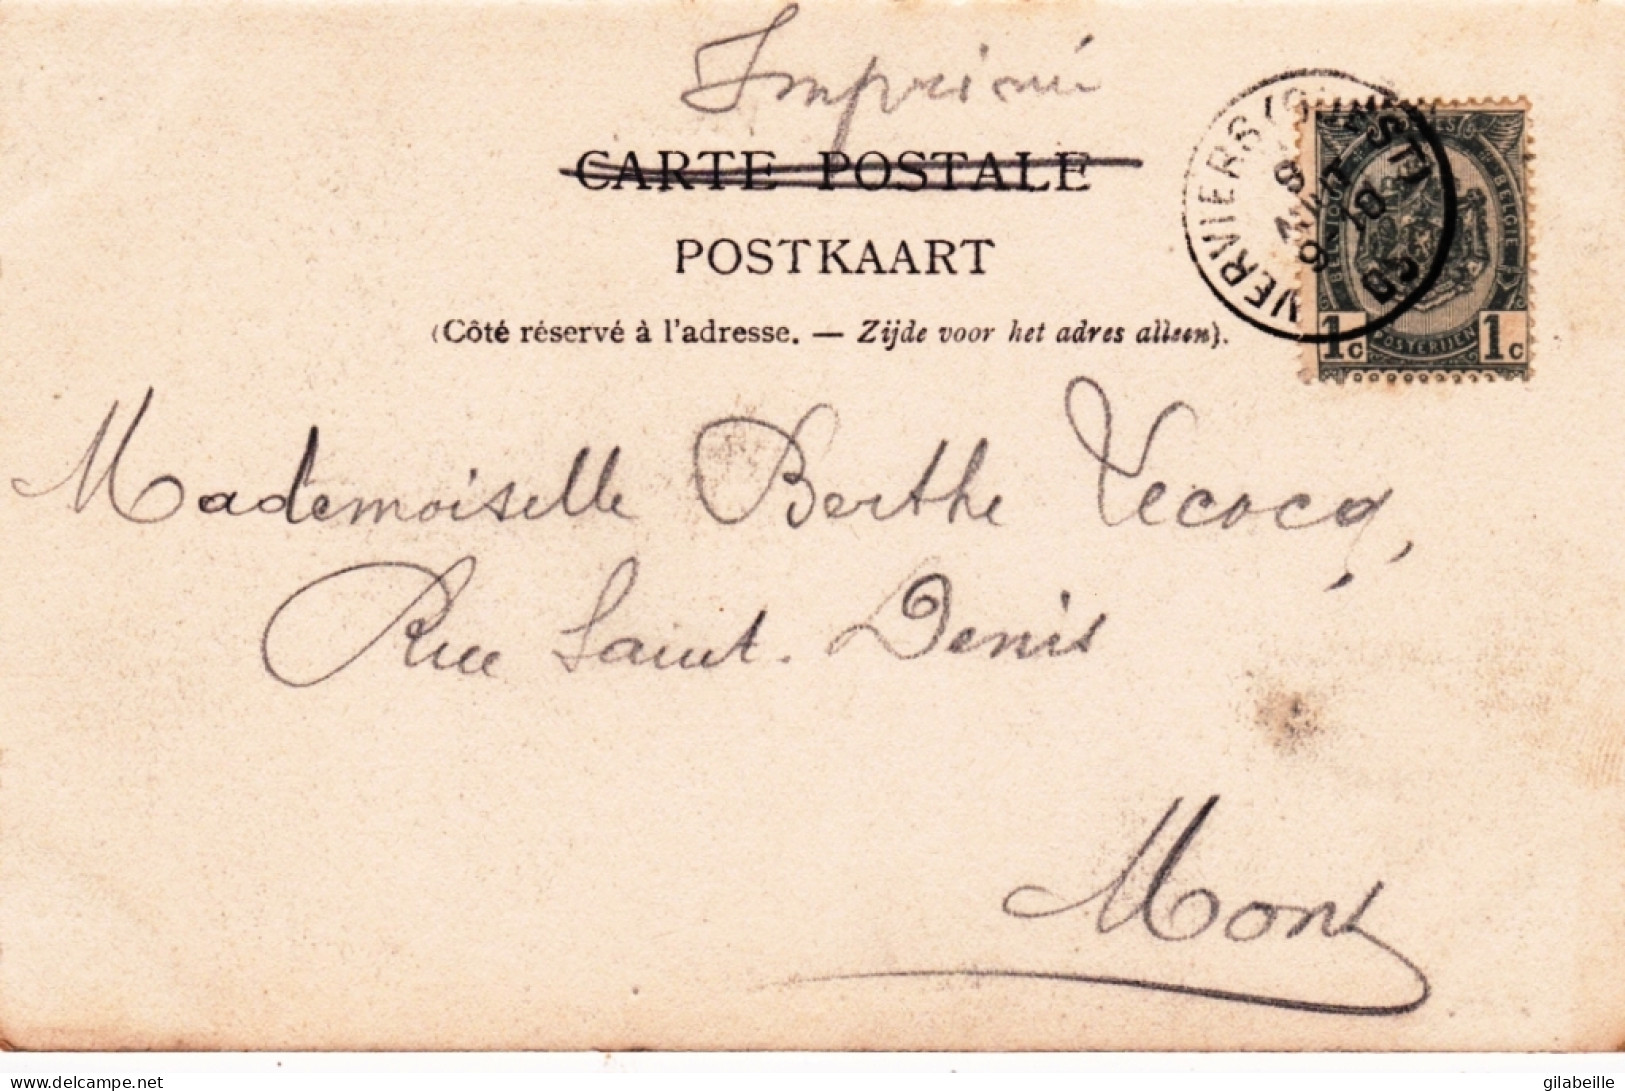 Imprimé
CARTE POSTALE
POSTKAART
(Côté réservé à l'adresse. — Zijde voor het adres alleen).
VERVIERS (OUEST)
BELGIQUE
BELGIE
POSTERIJEN
1c 1c
Mademoiselle Berthe Vecocq,
Rue Saint-Denis
Mons
www.delcampe.net
gilabeille